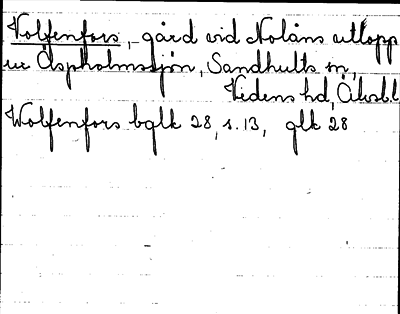 Wolfenfors, - gård vid Nolåns utlopp
ur Äspholmssjön, Sandhults sn,
Vedens hd, Älvsb.l
Wolfenfors bglk 28, s. 13, glk 28